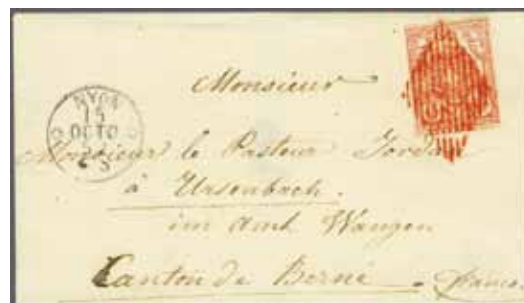 Monsieur
NYON
15
OCTO
Monsieur le Pasteur Jordan
à Ursenbach.
im Amt Wangen
Canton de Berne. franco